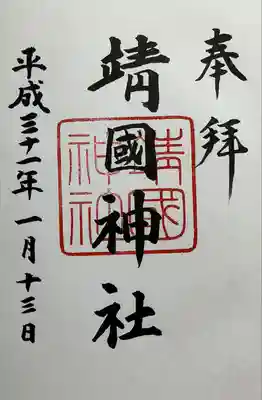 奉拝
靖國神社
靖國神社
平成三十一年一月十三日